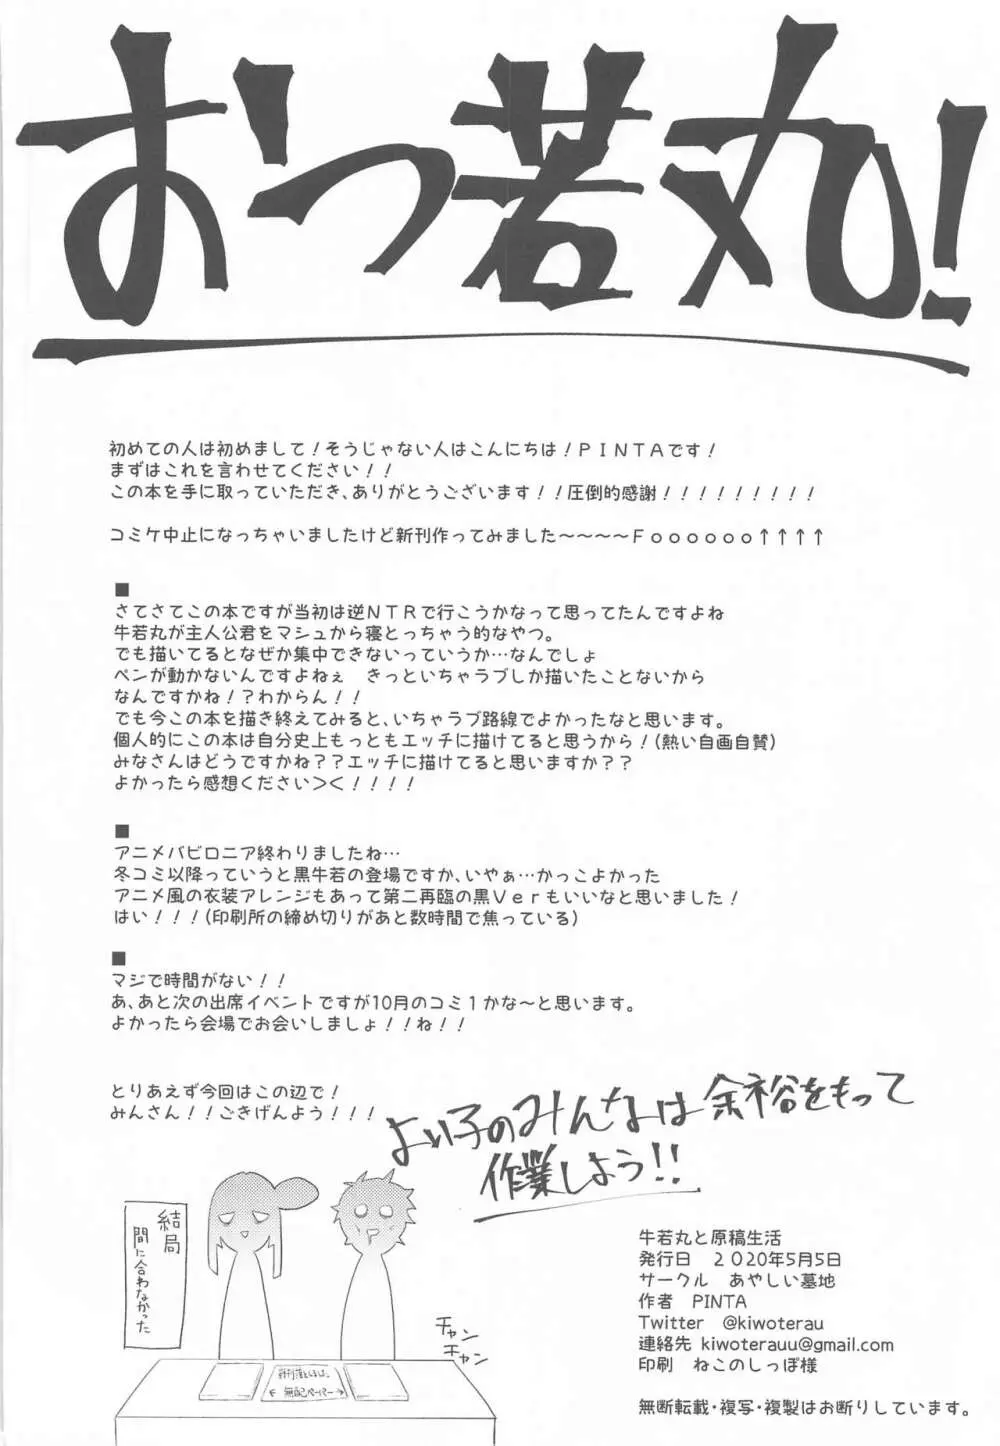 おつ若丸!
初めての人は初めまして！そうじゃない人はこんにちは！ＰＩＮＴＡです！
まずはこれを言わせてください！！
この本を手に取っていただき、ありがとうございます！！圧倒的感謝！！！！！！！！！
コミケ中止になっちゃいましたけど新刊作ってみました～～～～Ｆｏｏｏｏｏｏ↑↑↑↑
■
さてさてこの本ですが当初は逆ＮＴＲで行こうかなって思ってたんですよね
牛若丸が主人公君をマシュから寝とっちゃう的なやつ。
でも描いてるとなぜか集中できないっていうか…なんでしょ
ペンが動かないんですよねぇ　きっといちゃラブしか描いたことないから
なんですかね！？わからん！！
でも今この本を描き終えてみると、いちゃラブ路線でよかったなと思います。
個人的にこの本は自分史上もっともエッチに描けてると思うから！(熱い自画自賛)
みなさんはどうですかね？？エッチに描けてると思いますか？？
よかったら感想ください＞＜！！！！
■
アニメバビロニア終わりましたね…
冬コミ以降っていうと黒牛若の登場ですか、いやぁ…かっこよかった
アニメ風の衣装アレンジもあって第二再臨の黒Ｖｅｒもいいなと思いました！
はい！！！(印刷所の締め切りがあと数時間で焦っている)
■
マジで時間がない！！
あ、あと次の出席イベントですが10月のコミ１かな～と思います。
よかったら会場でお会いしましょ！！ね！！
とりあえず今回はこの辺で！
みんさん！！ごきげんよう！！！
よい子のみんなは余裕をもって
作業しよう!!
結局
間に合わなかった
チャン
チャン
新刊落としました
← 無配ペーパー →
牛若丸と原稿生活
発行日　２０20年5月5日
サークル　あやしい墓地
作者　PINTA
Twitter　@kiwoterau
連絡先 kiwoterauu@gmail.com
印刷　ねこのしっぽ様
無断転載・複写・複製はお断りしています。